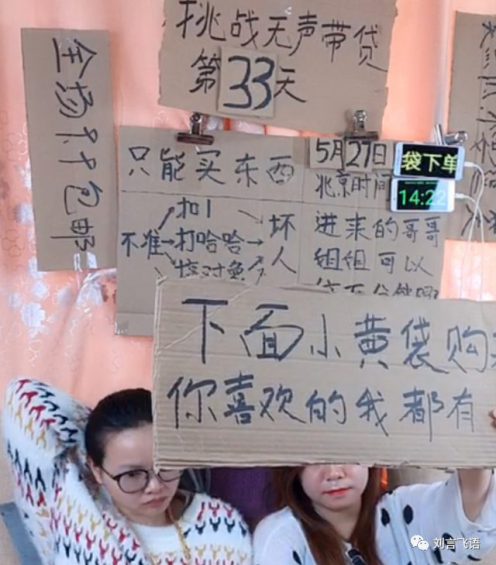 挑战无声带贷
第33天
全场9.9包邮
只能买东西
扣1
不准 打哈哈 坏人
5月27日
北京时间
袋下单
14:22
进来的哥哥
组组可以
下面小黄袋购
你喜欢的我都有
刘言飞语